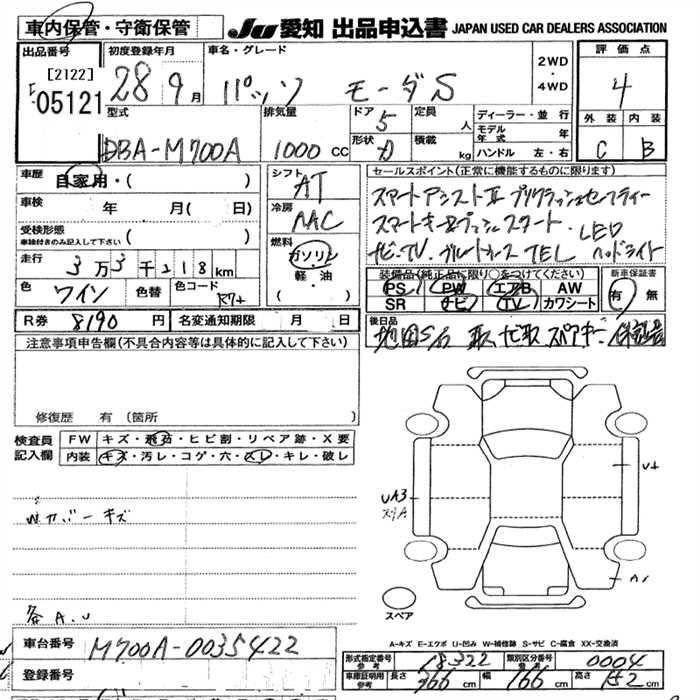 車内保管・守衛保管
JU 愛知 出品申込書 JAPAN USED CAR DEALERS ASSOCIATION
出品番号 初度登録年月 車名・グレード 2WD・4WD 評価点
[2122]
05121 28 9月 パッソ モーダS 4
型式 排気量 ドア 5 定員 人 ディーラー・並行 外装 内装
DBA-M700A 1000CC 形状 積載 kg モデル年式 年 ハンドル 左・右 C B
車歴 自家用・( ) シフト AT セールスポイント(正常に機能するものに限ります)
車検 年 月( 日) 冷房 AAC スマートアシストII プリクラッシュセーフティー
受検形態 車検付きのみ記入して下さい ( ) 燃料 ガソリン 軽・油 ( ) スマートキー&プッシュスタート・LED
走行 3万3千218km ナビ・TV・ブルートゥース TEL ヘッドライト
色 ワイン 色替 色コード R74 装備品(純正品に限り○をつけてください) 新車保証書
PS PW エアB AW 有・無
SR ナビ TV カワシート
R券 8190円 名変通知期限 月 日 後日品
注意事項申告欄(不具合内容等は具体的に記入して下さい)
修復歴 有 (箇所 )
検査員記入欄 FW キズ・飛石・ヒビ割・リペア跡・X要
内装 キズ・汚レ・コゲ・穴・スレ・キレ・破レ
Wカバーキズ
各A.U
UA3
スリA
U1
A1
スペア
A-キズ E-エクボ U-凹み W-補修跡 S-サビ C-腐食 XX-交換済
車台番号 M700A-0035422
登録番号
形式指定番号 参考 18322 類別区分番号 参考 0004
車庫証明用 参考 長さ 366cm 幅 166cm 高さ 152cm